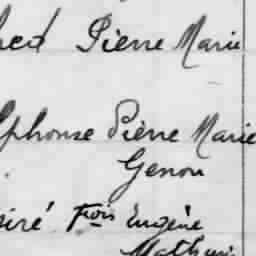 red Pierre Marie
lphonse Pierre Marie
Genou
siré Frois Eugène
Mathuri